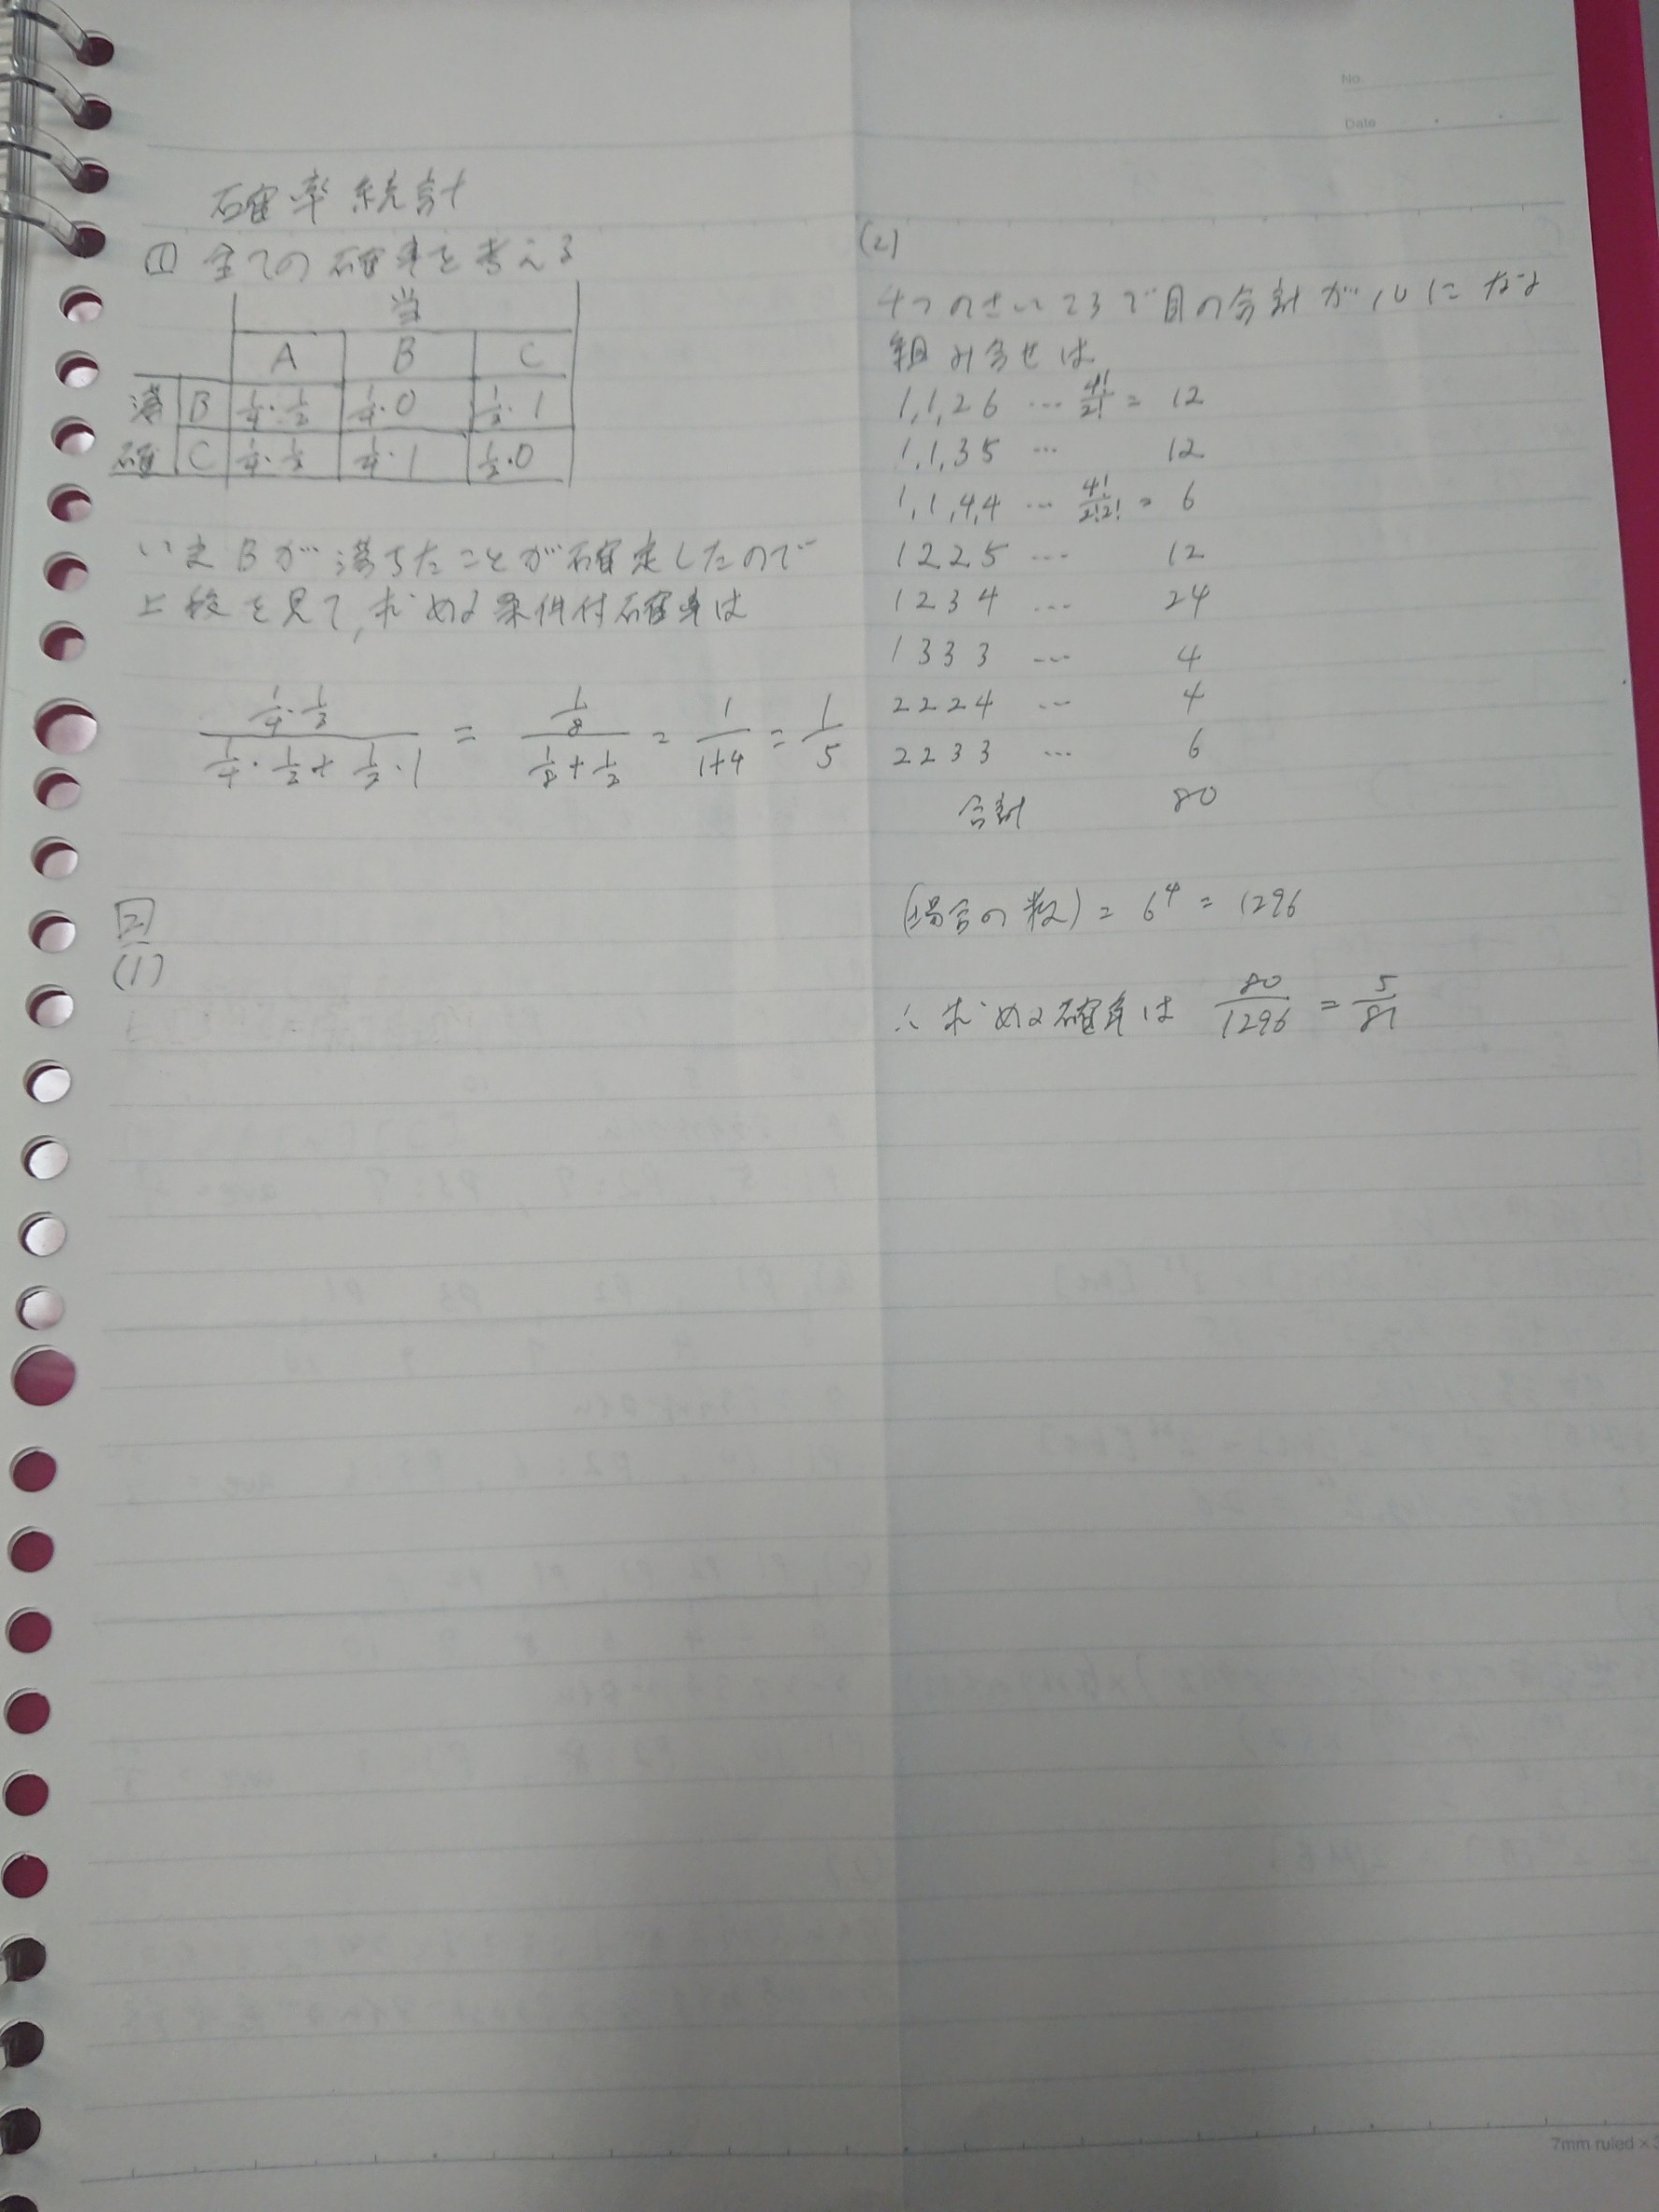 No.
Date
確率統計
1 全ての確率を考える
当
A B C
落 B 1/4・1/2 1/4・0 1/2・1
確 C 1/4・1/2 1/4・1 1/2・0
いまBが落ちたことが確定したので
上段を見て,求める条件付確率は
(1/4・1/2)/(1/4・1/2+1/2・1) = (1/8)/(1/8+1/2) = 1/(1+4) = 1/5
2
(1)
(2)
4つのさいころで目の合計が10になる
組み合せは
1,1,2 6 … 4!/2! = 12
1,1,3 5 … 12
1,1,4,4 … 4!/2!2! = 6
1 2 2 5 … 12
1 2 3 4 … 24
1 3 3 3 … 4
2 2 2 4 … 4
2 2 3 3 … 6
合計 80
(場合の数) = 6⁴ = 1296
∴ 求める確率は 80/1296 = 5/81
7mm ruled ×